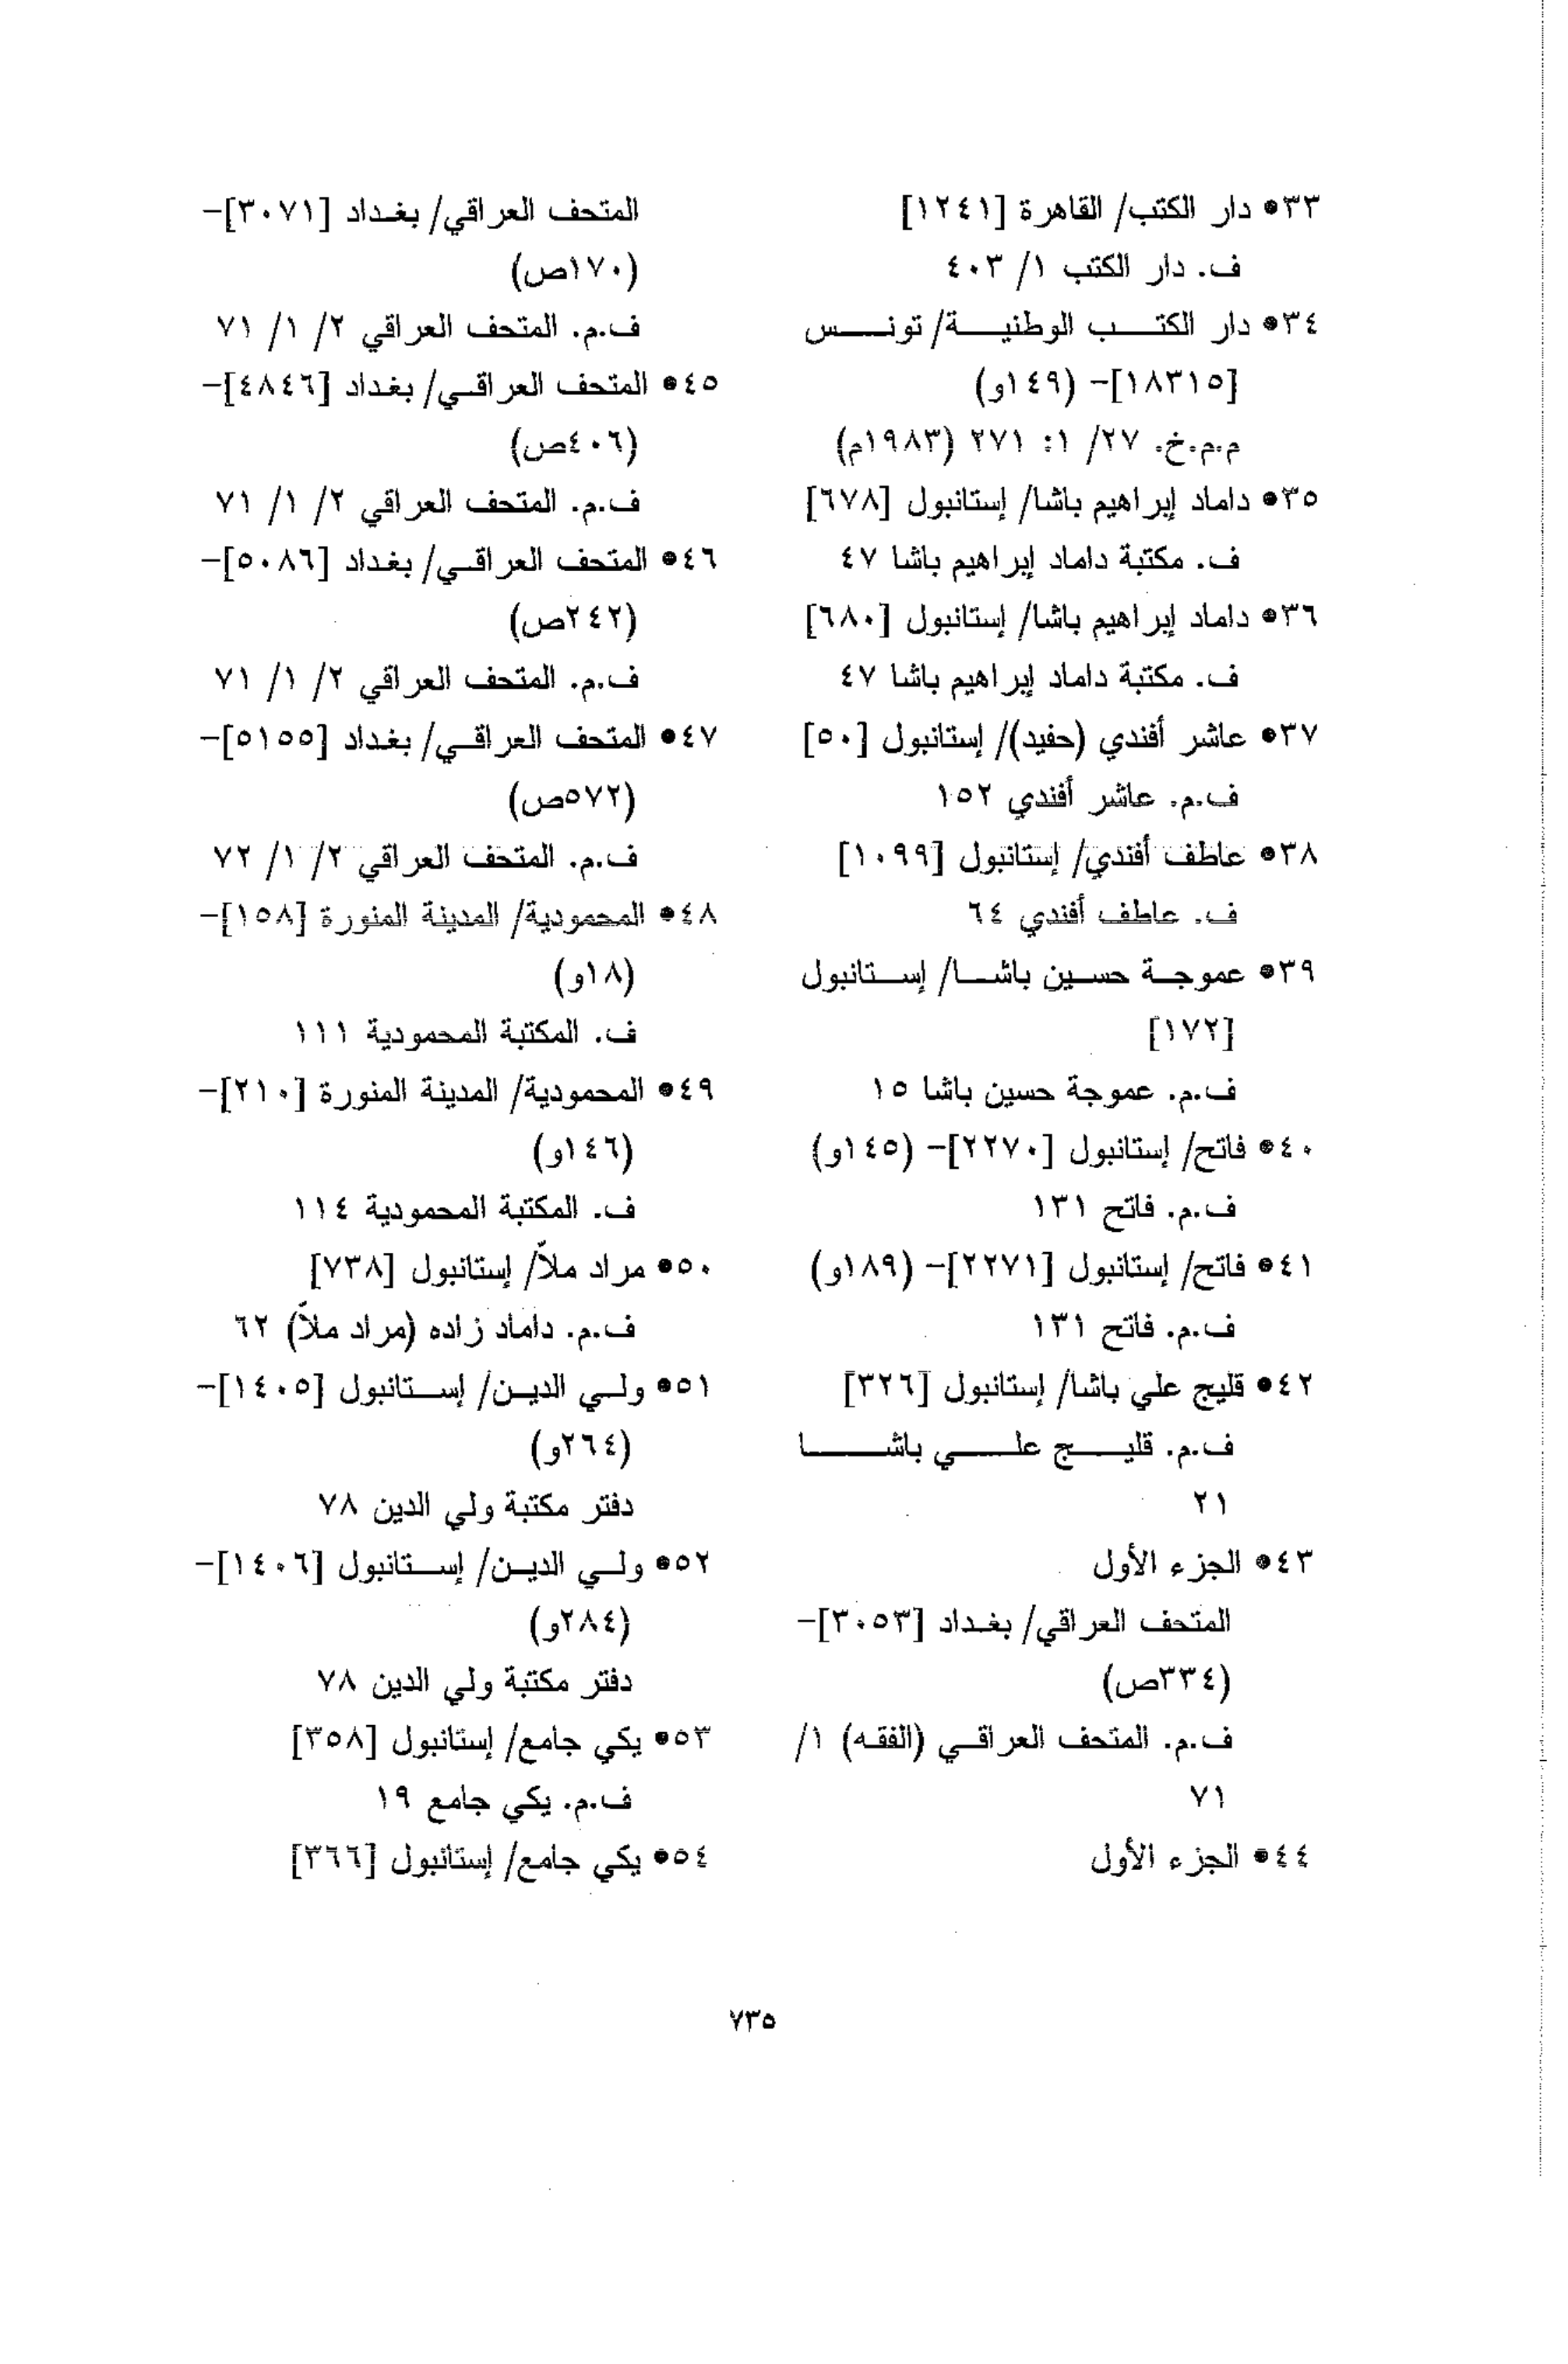 ٣٣• دار الكتب/ القاهرة [١٢٤١]
ف. دار الكتب ١/ ٤٠٣
٣٤• دار الكتـــب الوطنيـــة/ تونـــس
[١٨٣١٥]– (١٤٩و)
م.م.خ. ٢٧/ ١: ٢٧١ (١٩٨٣م)
٣٥• داماد إبراهيم باشا/ إستانبول [٦٧٨]
ف. مكتبة داماد إبراهيم باشا ٤٧
٣٦• داماد إبراهيم باشا/ إستانبول [٦٨٠]
ف. مكتبة داماد إبراهيم باشا ٤٧
٣٧• عاشر أفندي (حفيد)/ إستانبول [٥٠]
ف.م. عاشر أفندي ١٥٢
٣٨• عاطف أفندي/ إستانبول [١٠٩٩]
ف. عاطف أفندي ٦٤
٣٩• عموجـة حسـين باشـا/ إسـتانبول
[١٧٢]
ف.م. عموجة حسين باشا ١٥
٤٠• فاتح/ إستانبول [٢٢٧٠]– (١٤٥و)
ف.م. فاتح ١٣١
٤١• فاتح/ إستانبول [٢٢٧١]– (١٨٩و)
ف.م. فاتح ١٣١
٤٢• قليج علي باشا/ إستانبول [٣٢٦]
ف.م. قليـــج علـــي باشـــا
٢١
٤٣• الجزء الأول
المتحف العراقي/ بغـداد [٣٠٥٣]–
(٣٣٤ص)
ف.م. المتحف العراقـي (الفقـه) ١/
٧١
٤٤• الجزء الأول
المتحف العراقي/ بغـداد [٣٠٧١]–
(١٧٠ص)
ف.م. المتحف العراقي ٢/ ١/ ٧١
٤٥• المتحف العراقـي/ بغداد [٤٨٤٦]–
(٤٠٦ص)
ف.م. المتحف العراقي ٢/ ١/ ٧١
٤٦• المتحف العراقـي/ بغداد [٥٠٨٦]–
(٢٤٢ص)
ف.م. المتحف العراقي ٢/ ١/ ٧١
٤٧• المتحف العراقـي/ بغداد [٥١٥٥]–
(٥٧٢ص)
ف.م. المتحف العراقي ٢/ ١/ ٧٢
٤٨• المحمودية/ المدينة المنورة [١٥٨]–
(١٨و)
ف. المكتبة المحمودية ١١١
٤٩• المحمودية/ المدينة المنورة [٢١٠]–
(١٤٦و)
ف. المكتبة المحمودية ١١٤
٥٠• مراد ملاّ/ إستانبول [٧٣٨]
ف.م. داماد زاده (مراد ملاّ) ٦٢
٥١• ولـي الديـن/ إسـتانبول [١٤٠٥]–
(٢٦٤و)
دفتر مكتبة ولي الدين ٧٨
٥٢• ولـي الديـن/ إسـتانبول [١٤٠٦]–
(٢٨٤و)
دفتر مكتبة ولي الدين ٧٨
٥٣• يكي جامع/ إستانبول [٣٥٨]
ف.م. يكي جامع ١٩
٥٤• يكي جامع/ إستانبول [٣٦٦]
٧٣٥